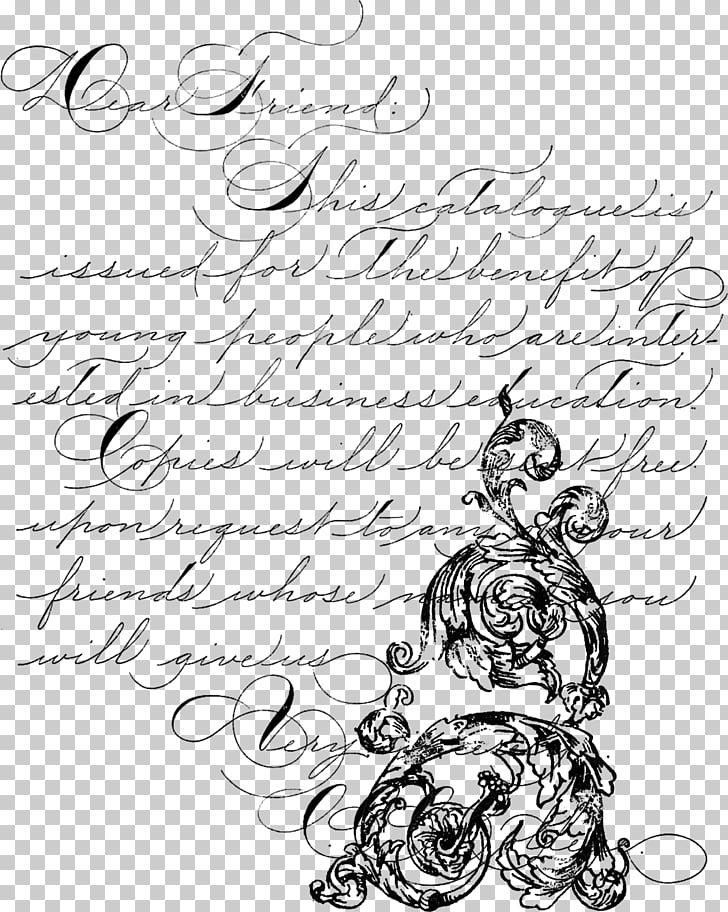 Dear Friend:
This catalogue is
issued for the benefit of
young people who are inter-
ested in business education
Copies will be free
upon request to your
friends whose you
will give us
Very